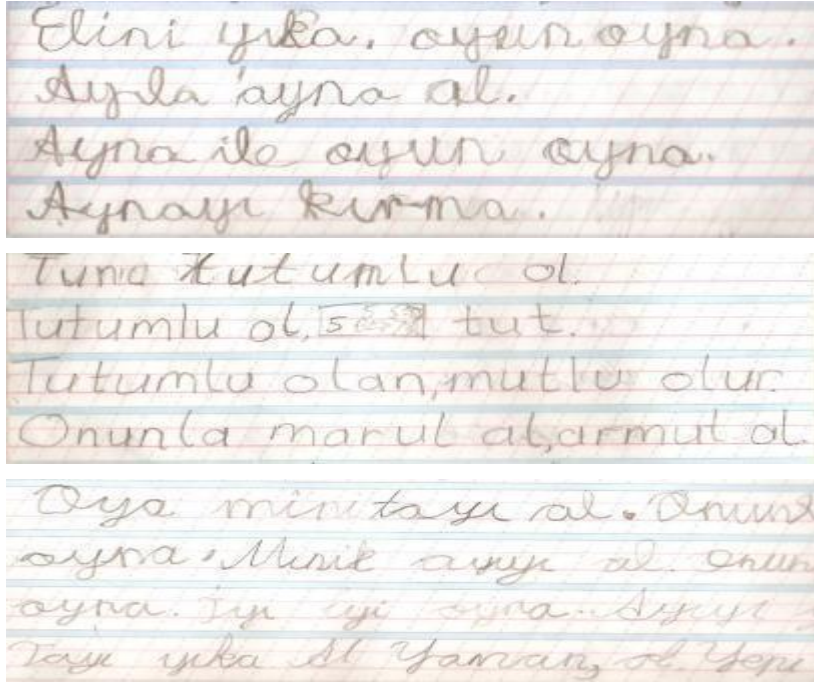 Elini yıka. oyun oyna.
Ayla ayna al.
Ayna ile oyun oyna.
Aynayı kırma.
Tuna tutumlu ol.
Tutumlu ol, 5 tut.
Tutumlu olan, mutlu olur.
Onunla marul al, armut al.
Oya mini tayı al. Onunl
oyna. Minik ayıyı al. Onun
oyna. İyi iyi oyna. Ayıyı
Tayı yıka Al Yaman, al. Yeni